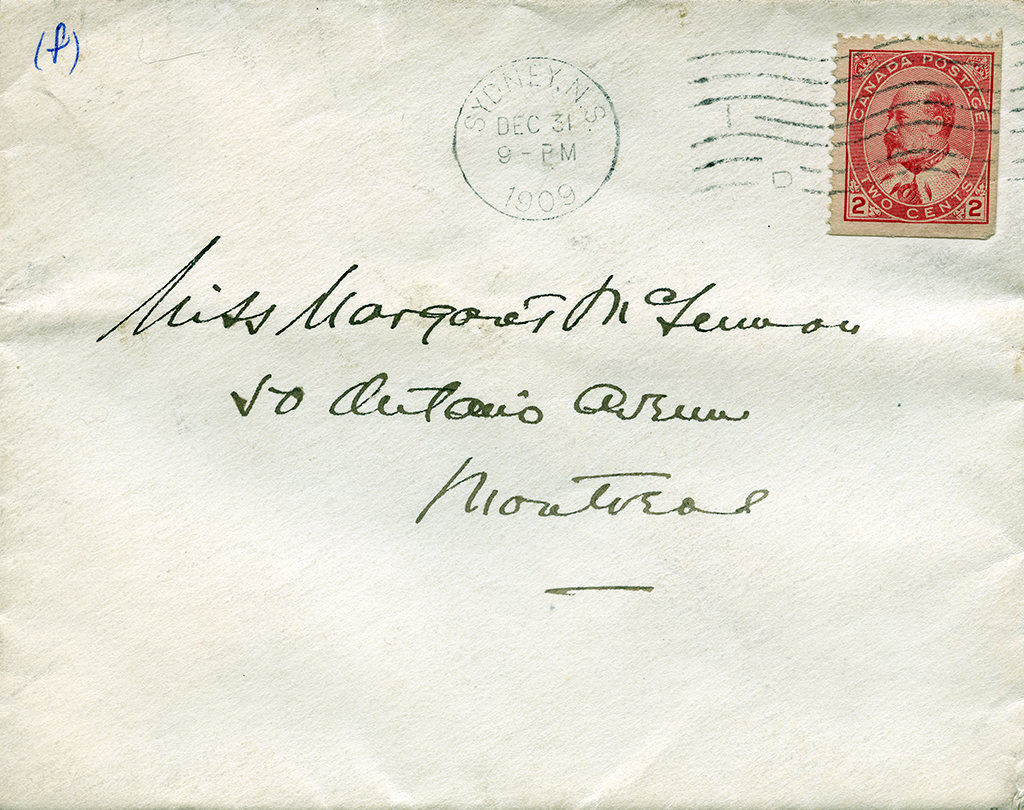 (f)
SYDNEY, N.S.
DEC 31
9 - PM
1909
CANADA POSTAGE
TWO CENTS
2 2
D
Miss Margaret McLennan
50 Ontario Avenue
Montreal